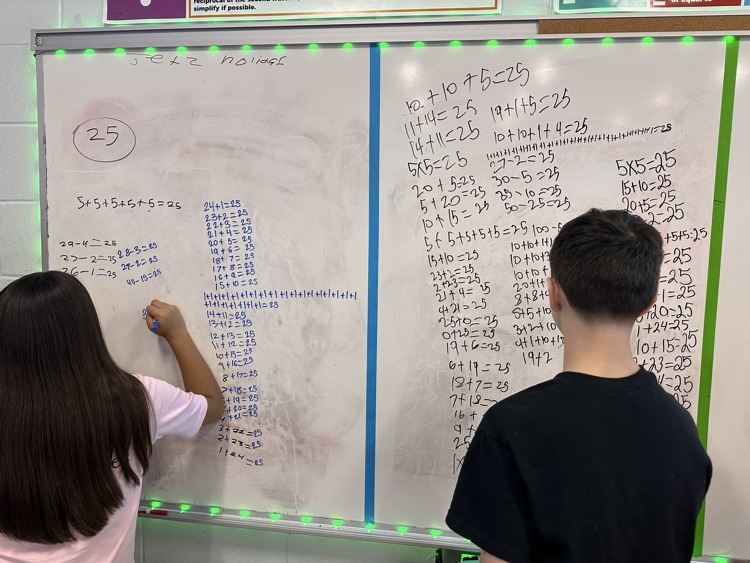 reciprocal of the second
simplify if possible.
25
5+5+5+5+5=25
29-4=25
27-2=25
26-1=25
28-3=25
27-2=25
40-15=25
24+1=25
23+2=25
22+3=25
21+4=25
20+5=25
19+6=25
18+7=25
17+8=25
16+9=25
15+10=25
1+1+1+1+1+1+1+1+1+1+1+1+1+1+1+1+
1+1+1+1+1+1+1+1+1=25
14+11=25
13+12=25
12+13=25
11+12=25
10+15=25
9+16=25
8+17=25
+18=25
+19=25
+20=25
+21=25
3+22=25
2+23=25
1+24=25
10+10+5=25
11+14=25
14+11=25
5x5=25
20+5=25
5+20=25
10+15=25
5+5+5+5+5=25
15+10=25
23+2=25
2+23=25
21+4=25
4+21=25
25+0=25
0+25=25
19+6=25
6+19=25
18+7=25
7+18=
16+
9+
25
19+1+5=25
10+10+1+4=25
27-2=25
30-5=25
35-10=25
50-25=25
100-
10+10+
10+10+
10+10
20+1+
8+8+
5+5+10
3+2+1
4+1+10+
19+2
5x5=25
15+10=25
20+5=25
-2=25
+5+5=25
=25
=25
-1=25
+20=25
+24=25
10+15=25
+23=25
=25
=25